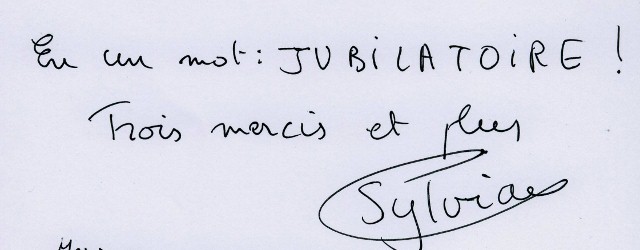 En un mot : JUBiLATOiRE !
Trois mercis et plus
Sylviane